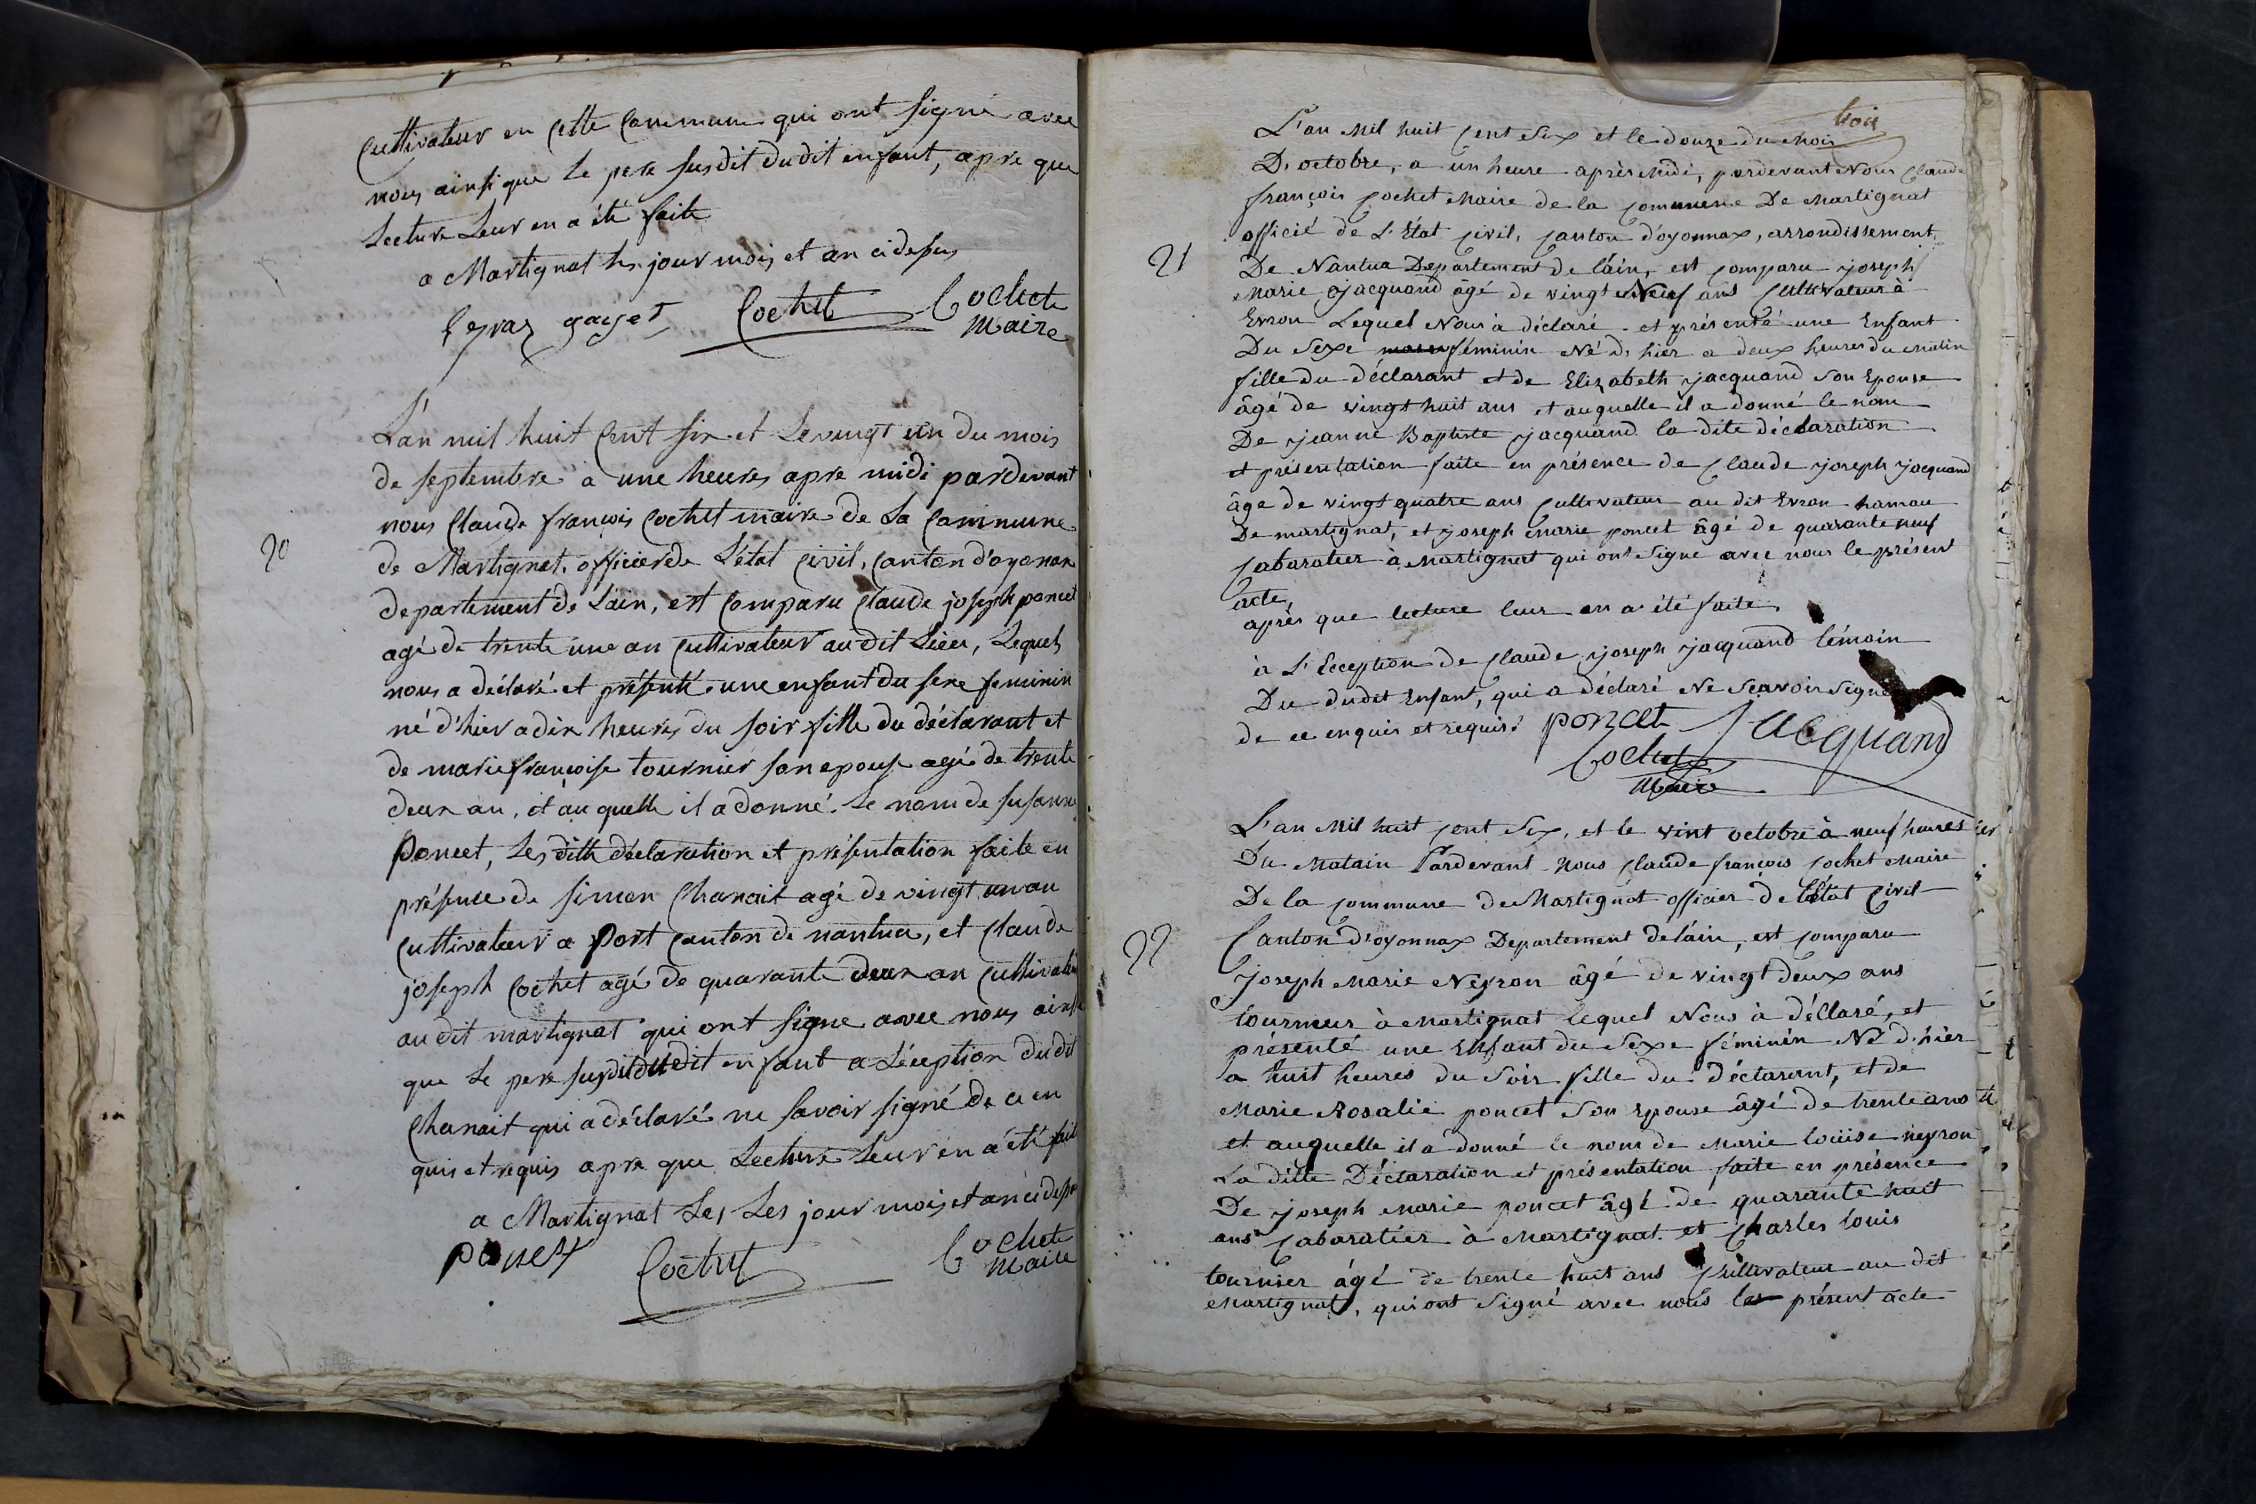 Cultivateur en cette Commune qui ont signé avec
nous ainsi que le pere susdit dudit enfant, apre que
Lecture Leur en a été faite
a Martignat les jour mois et an ci desus
gayet Cochet Cochet
Maire
L'an mil huit Cent six et Le vingt un du mois
de septembre a une heures apre midi pardevant
20
nous Claude françois Cochet maire de La Commune
de Martignat officier de L'état Civil, Canton d'oyonax
departement de L'ain, est Comparu Claude joseph poncet
agé de trente une an Cultivateur au dit Lieu, Lequel
nous a déclaré et présenté une enfant du sexe feminin
né d'hier a dix heures du soir fille du déclarant et
de marie françoise tournier son epouse agé de trente
deux an, et au quelle il a donné Le nom de susanne
Poncet, Les ditte déclaration et présentation faite en
présence de simon Chanait agé de vingt un an
Cultivateur a Port Canton de nantua, et Claude
joseph Cochet agé de quarante deux an Cultivateur
au dit martignat qui ont signe avec nous ainsi
que Le pere susdit dudit enfant a L'éception dudit
Chanait qui a déclaré ne savoir signé de ce en
quis et requis apre que Lecture Leur en a été fait
a Martignat Les Les jour mois et an ci desu
poncet Cochet Cochet
Maire
trois
L'an Mil huit Cent Six et le douze du Mois
D'octobre, a un heure après Midi, pardevant Nous Claude
françois Cochet Maire de la Commune De Martignat
officié de L'État Civil, Canton d'oyonnax, arrondissement
21
De Nantua Departement de l'ain, est Comparu joseph
Marie jacquand âgé de vingt Neuf ans Cultivateur à
Evron Lequel Nous à déclaré et présenté une Enfant
Du Sexe féminin Né d'hier a deux heures du Matin
fille du déclarant et de Elizabeth jacquand Son Epouse
âgé de vingt huit ans et auquelle il a donné le nom
De jeanne Baptiste jacquand la dite déclaration
et présentation faite en présence de Claude joseph jacquand
âge de vingt quatre ans Cultivateur au dit Evron hamau
De martignat, et joseph Marie poncet âgé de quarante neuf
Cabaratier à Martignat qui ont Signe avec nous le présent
acte
après que lecture leur en a été faite
à L'Ecception de Claude joseph jacquand témoin
Du dudit Enfant, qui a déclaré Ne Scavoir Signé
de ce enquis et requis. poncet jacquand
Cochet
Maire
L'an Mil huit Cent Six, et le vint octobre à neuf heures
Du Matain Pardevant Nous Claude françois Cochet Maire
De la Commune de Martignat officier de l'État Civil
22
Canton d'oyonnax Departement de l'ain, est Comparu
joseph Marie Neyron âgé de vingt deux ans
tourneur à Martignat lequel Nous à déClaré, et
présenté une Enfant du Sexe féminin Né d'hier
a huit heures du Soir fille du déclarant, et de
Marie Rosalie poncet Son Epouse âgé de trente ans
et auquelle il a donné le nom de Marie louise neyron
La ditte Déclaration et présentation faite en présence
De joseph Marie poncet âgé de quarante huit
ans Cabaratier à Martignat et Charles louis
tournier ágé de trente huit ans Cultivateur au dit
Martignat, qui ont Signé avec nous le présent acte